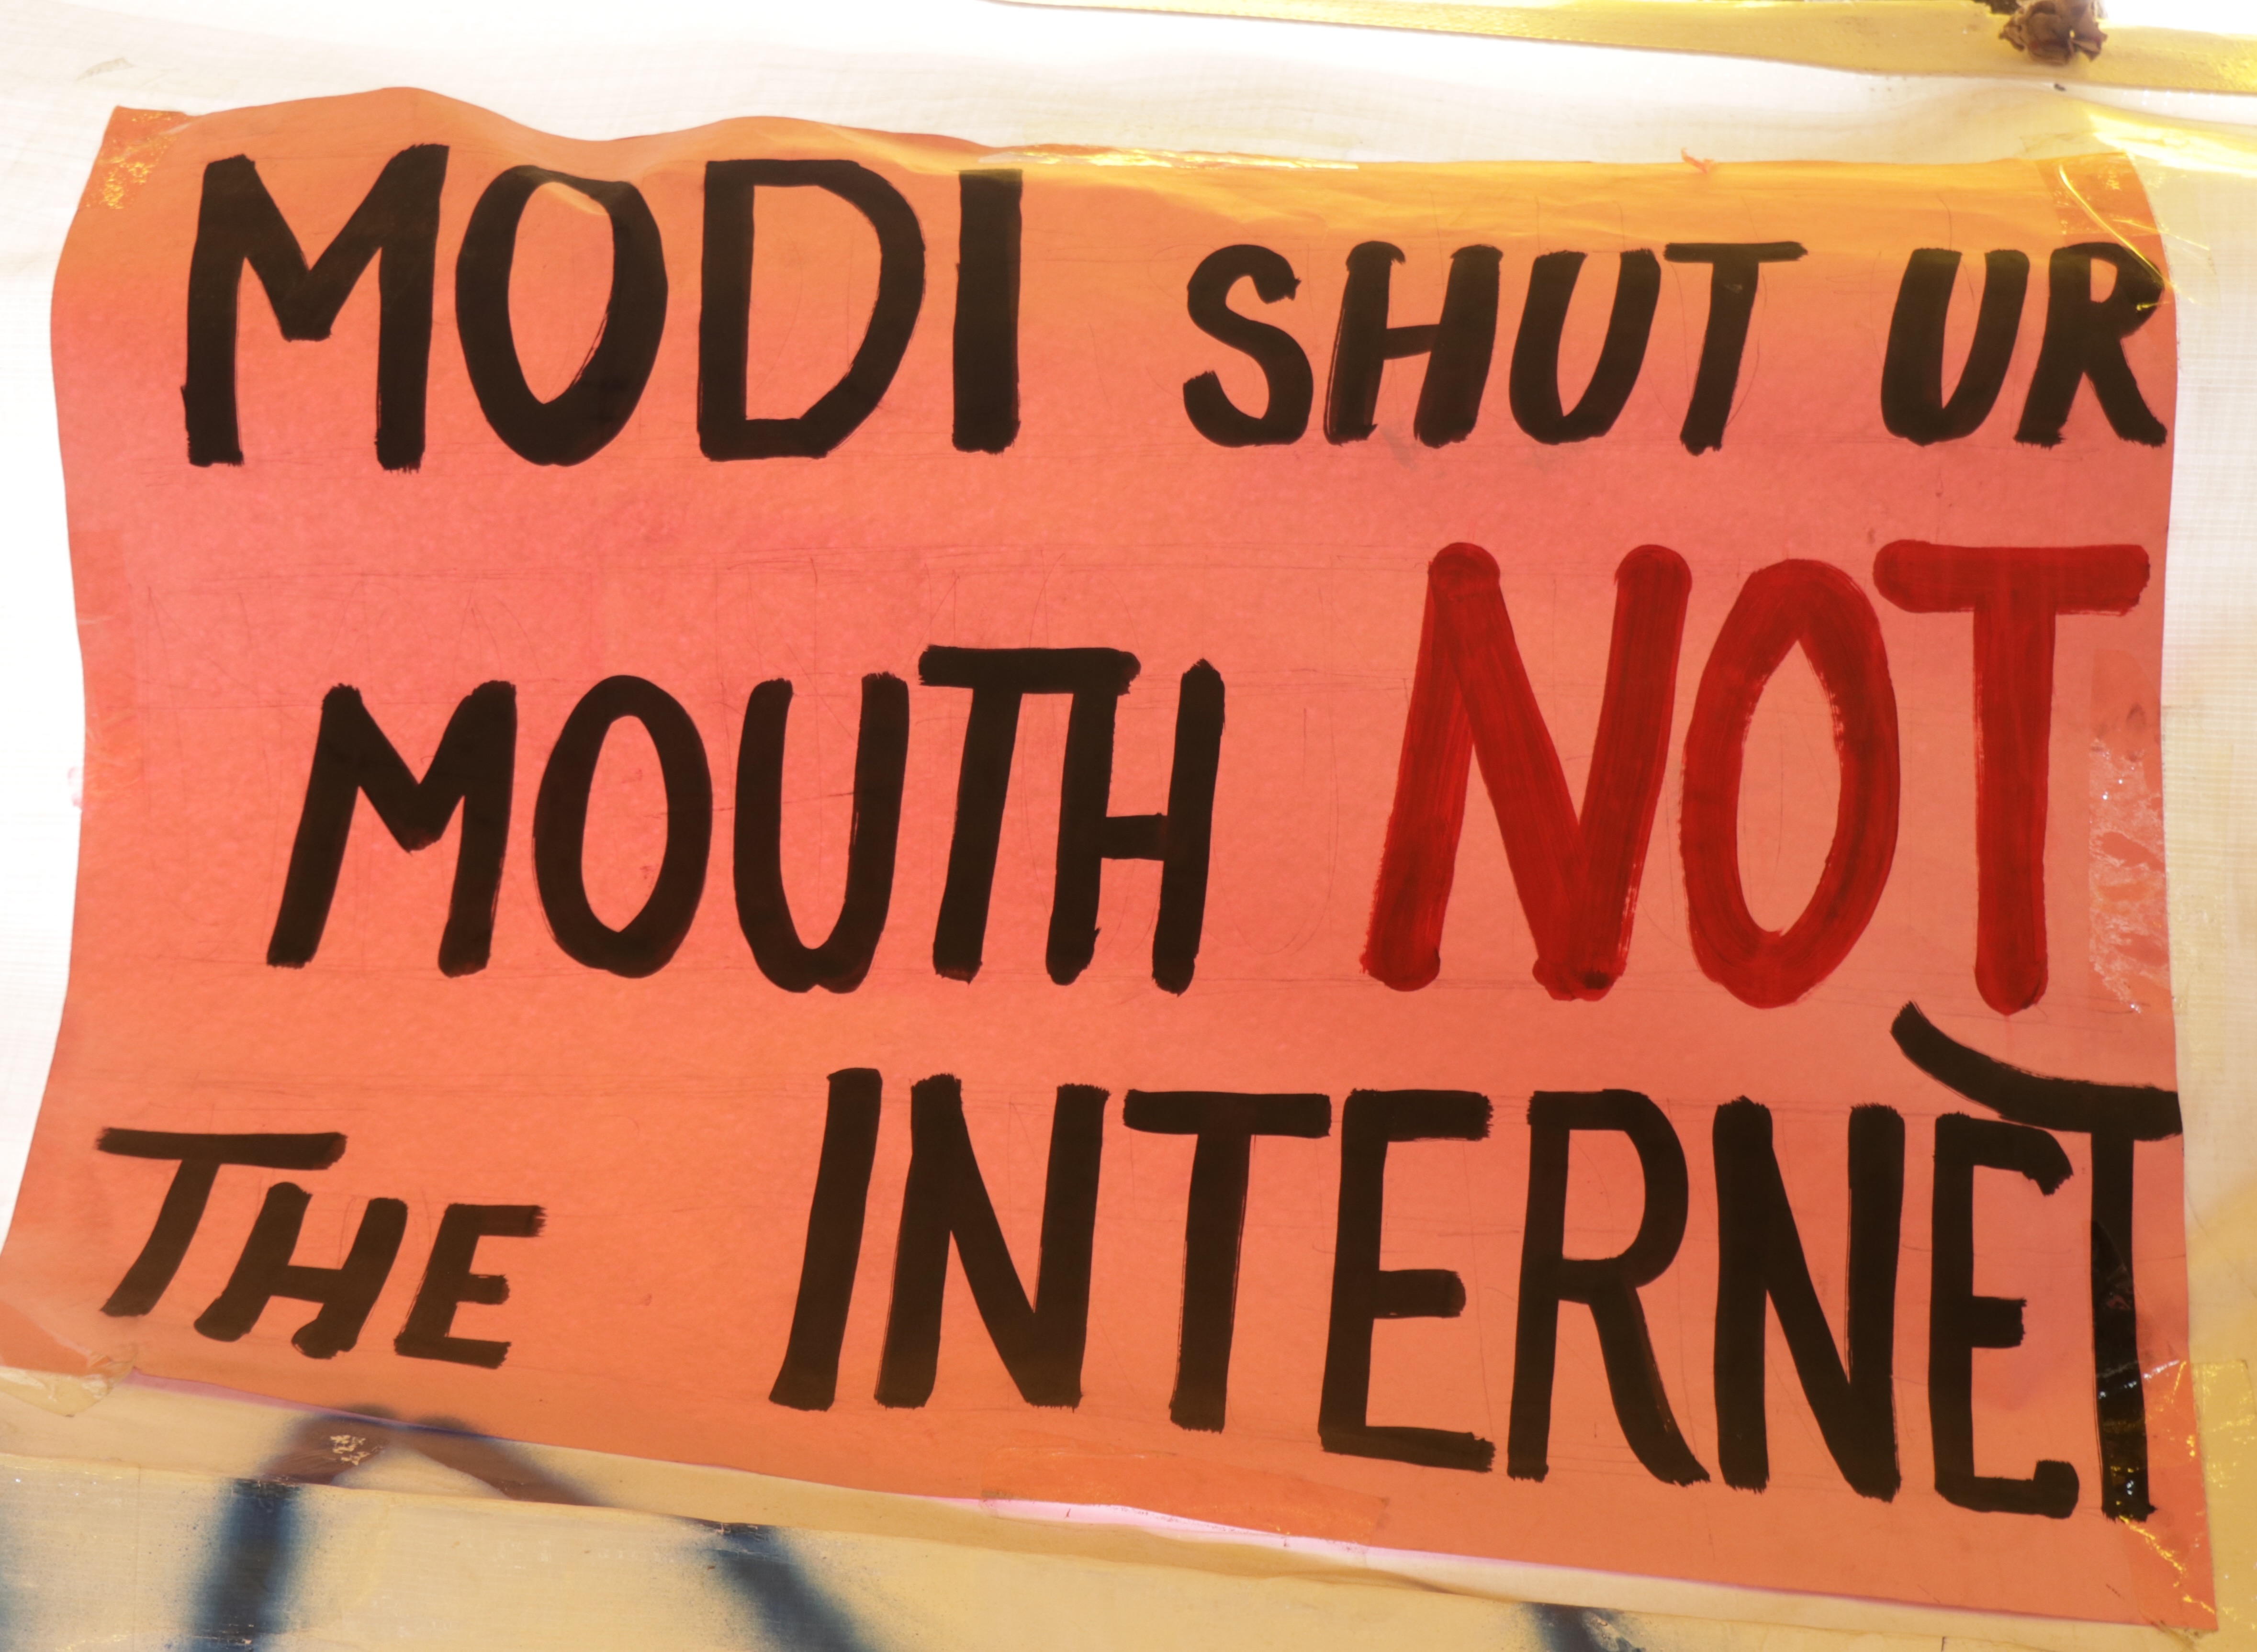 MODI SHUT UR
MOUTH NOT
THE INTERNET